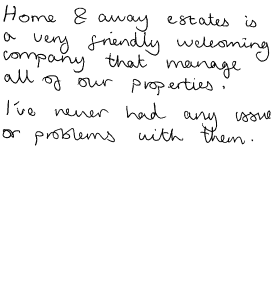 Home & away estates is
a very friendly welcoming
company that manage
all of our properties.
I've never had any issue
or problems with them.